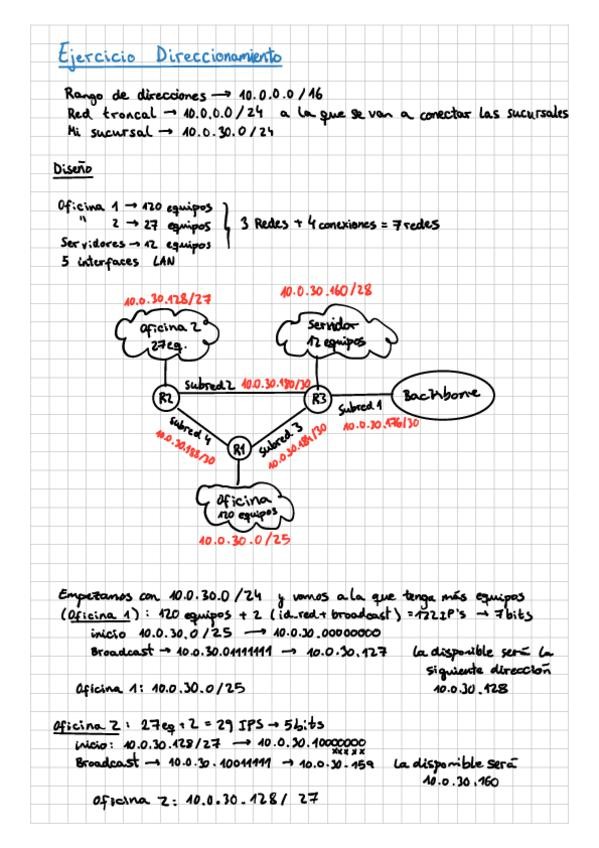 Ejercicio Direccionamiento
Rango de direcciones → 10.0.0.0 / 16
Red troncal → 10.0.0.0 / 24 a la que se van a conectar las sucursales
Mi sucursal → 10.0.30.0 / 24
Diseño
Oficina 1 → 120 equipos
" 2 → 27 equipos } 3 Redes + 4 conexiones = 7 redes
Servidores → 12 equipos
5 interfaces LAN
10.0.30.128/27
10.0.30.160/28
Oficina 2
27eq.
Servidor
12 equipos
R2
subred 2 10.0.30.180/30
R3
subred 1
10.0.30.176/30
Backbone
subred 4
10.0.30.188/30
R1
subred 3
10.0.30.184/30
Oficina
120 equipos
10.0.30.0/25
Empezamos con 10.0.30.0 / 24 y vamos a la que tenga más equipos
(Oficina 1) : 120 equipos + 2 (id_red + broadcast) = 122 IP's → 7 bits
inicio 10.0.30.0 / 25 → 10.0.30.00000000
Broadcast → 10.0.30.01111111 → 10.0.30.127 la disponible será la
siguiente dirección
10.0.30.128
Oficina 1: 10.0.30.0/25
Oficina 2 : 27eq + 2 = 29 IPS → 5 bits
inicio: 10.0.30.128/27 → 10.0.30.10000000
xxxxx
Broadcast → 10.0.30.10011111 → 10.0.30.159 la disponible será
10.0.30.160
Oficina 2: 10.0.30.128/ 27